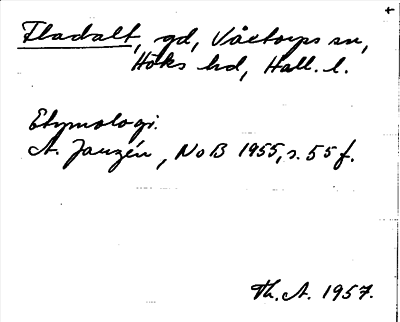 Fladalt, gd, Våxtorps sn,
Höks hd, Hall. l.
Etymologi.
A. Janzén, NoB 1955, s. 55 f.
Th. A. 1957.